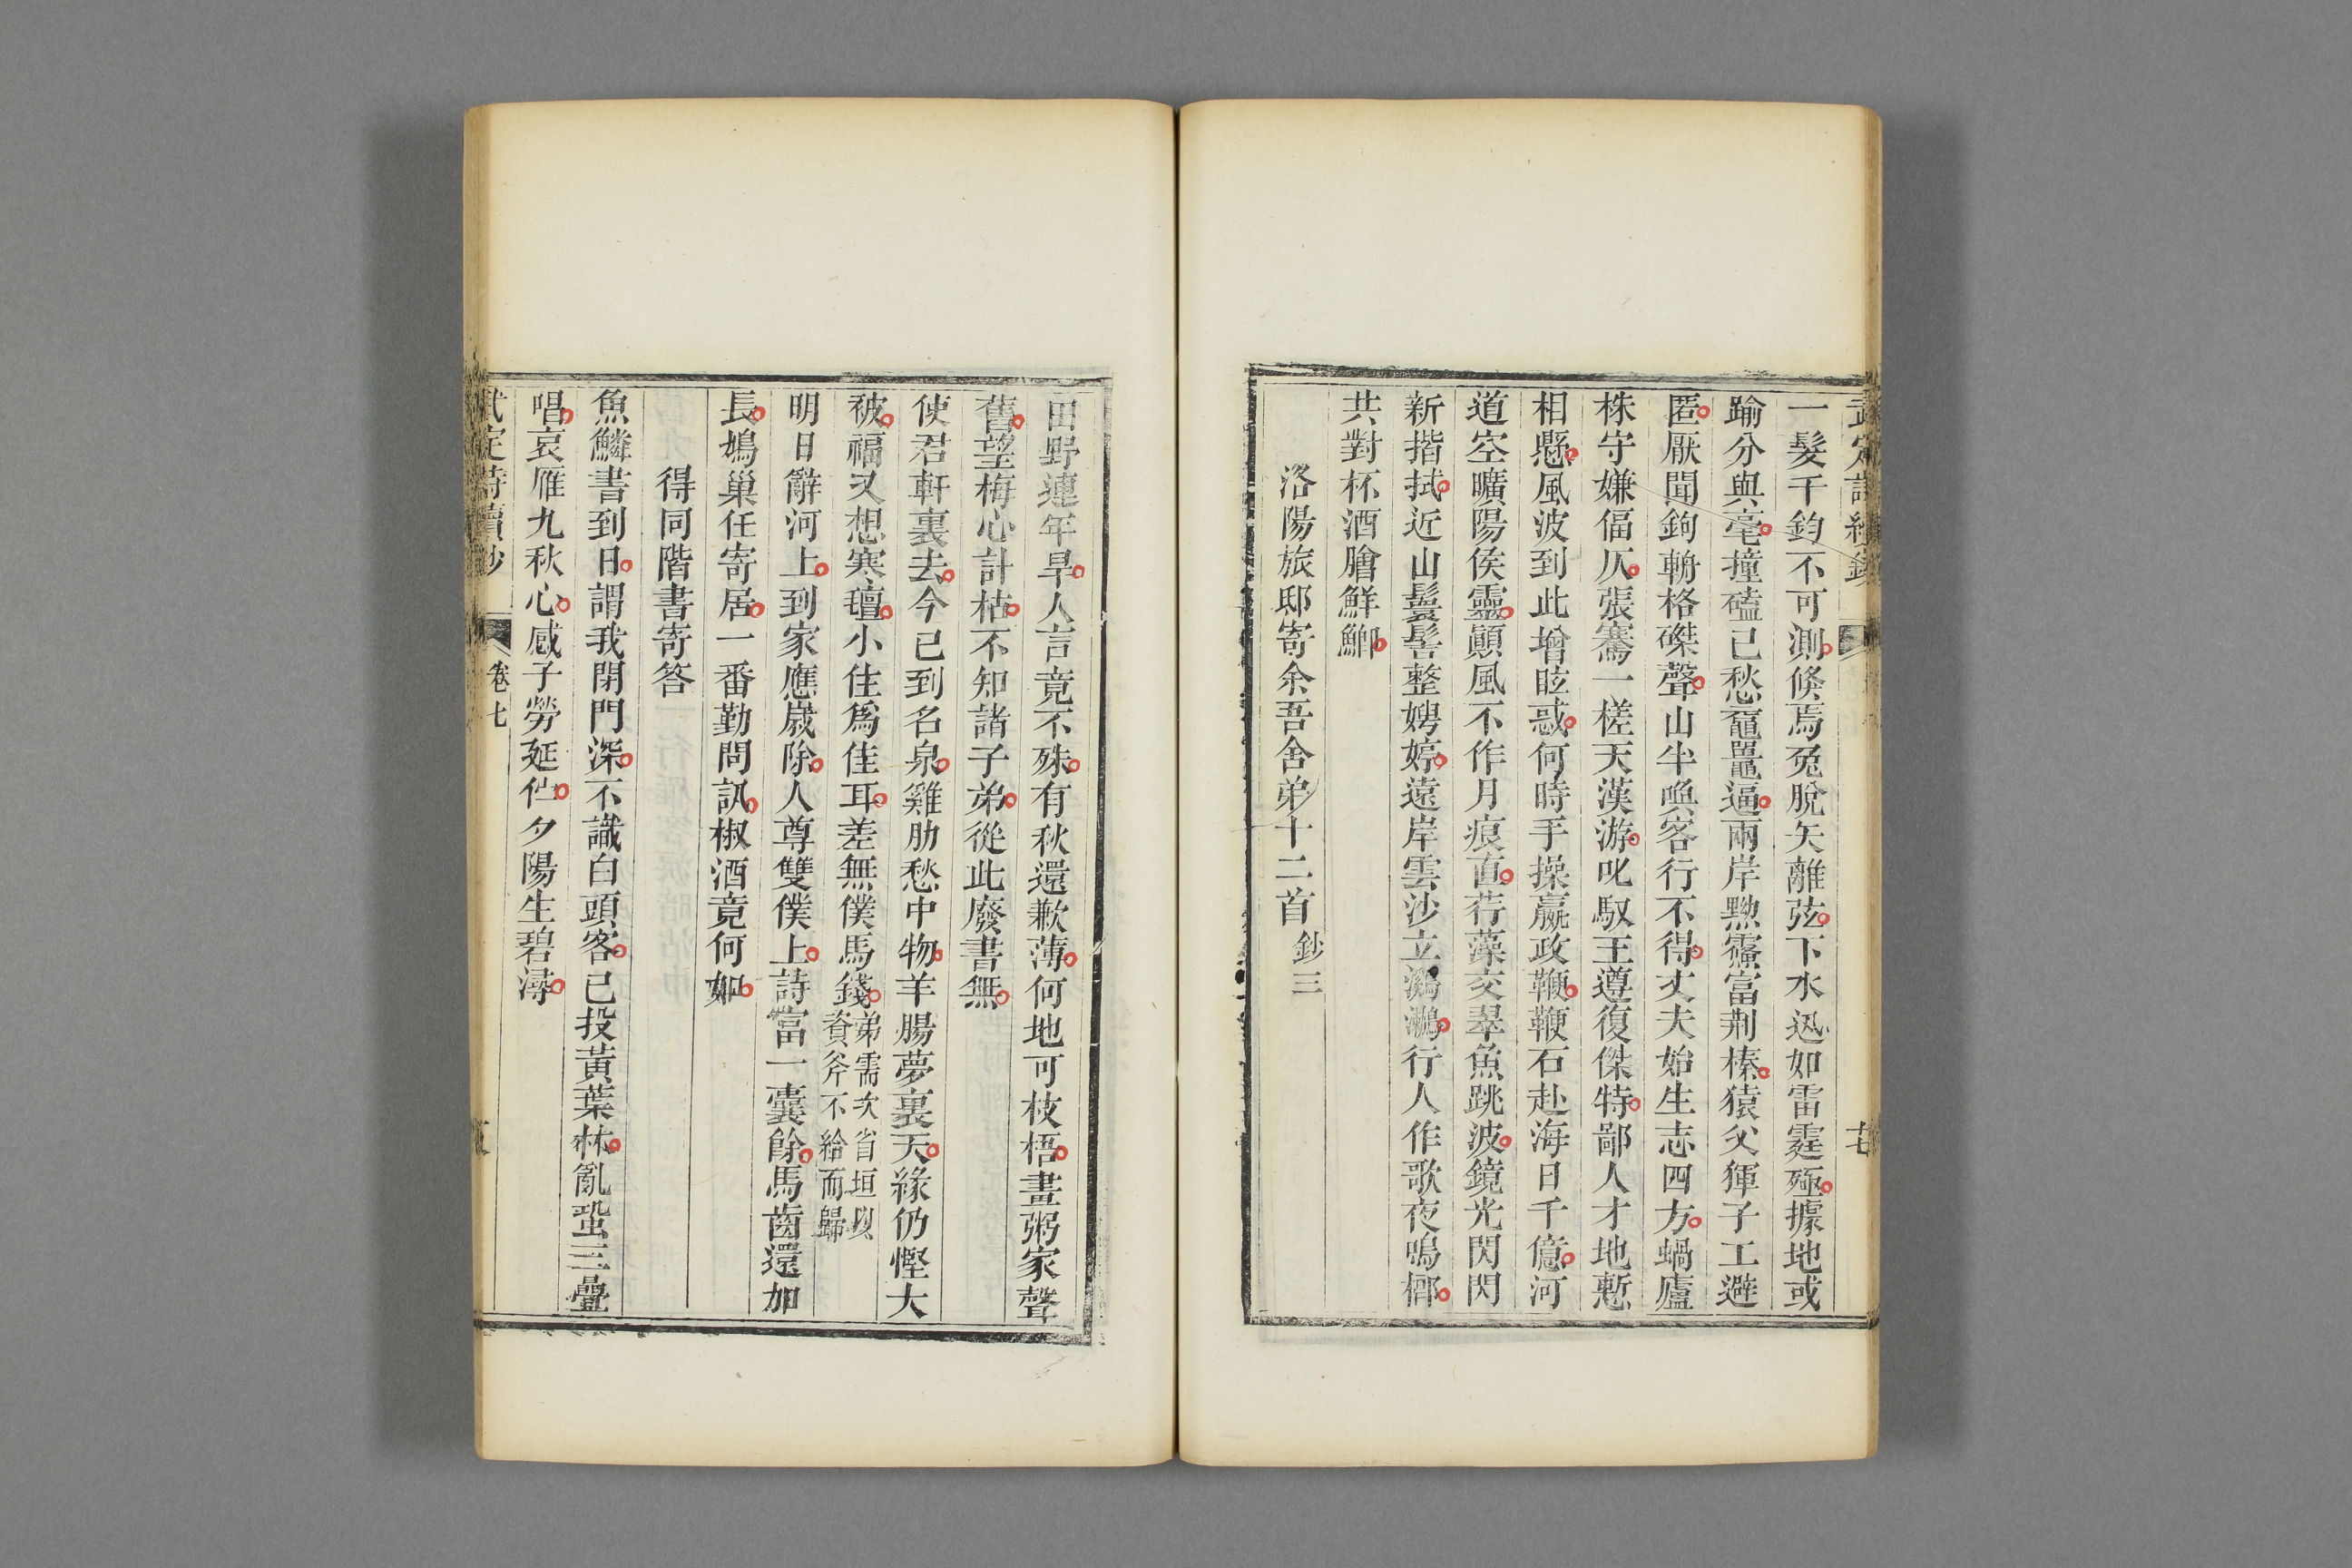 一髮千鈞不可測倏焉兔脫矢離弦下水迅如雷霆殛據地或
踰分與毫撞磕已愁黿鼉逼兩岸黝霿富荆榛猿父猙子工避
匿厭聞鉤輈格磔聲山半喚客行不得丈夫始生志四方蝸廬
株守嫌偪仄張騫一槎天漢游叱馭王遵復傑特鄙人才地慙
相懸風波到此增眩惑何時手操嬴政鞭鞭石赴海日千億河
道空曠陽侯靈顚風不作月痕直荇藻交翠魚跳波鏡光閃閃
新揩拭近山鬟髻整娉婷遠岸雲沙立鸂鶒行人作歌夜鳴榔
共對杯酒膾鮮鯽
洛陽旅邸寄余吾舍弟十二首 鈔三
田野連年旱人言竟不殊有秋還歉薄何地可枝梧畫粥家聲
舊望梅心計枯不知諸子弟從此廢書無
使君軒裏去今已到名泉雞肋愁中物羊腸夢裏天緣仍慳大
被福又想寒氊小住爲佳耳差無僕馬錢 弟需次省垣以
資斧不給而歸
明日辭河上到家應歲除人尊雙僕上詩富一囊餘馬齒還加
長鳩巢任寄居一番勤問訊椒酒竟何如
得同階書寄答
魚鱗書到日謂我閉門深不識白頭客已投黃葉林亂蛩三疊
唱哀雁九秋心感子勞延伫夕陽生碧潯
武定詩續鈔 卷七